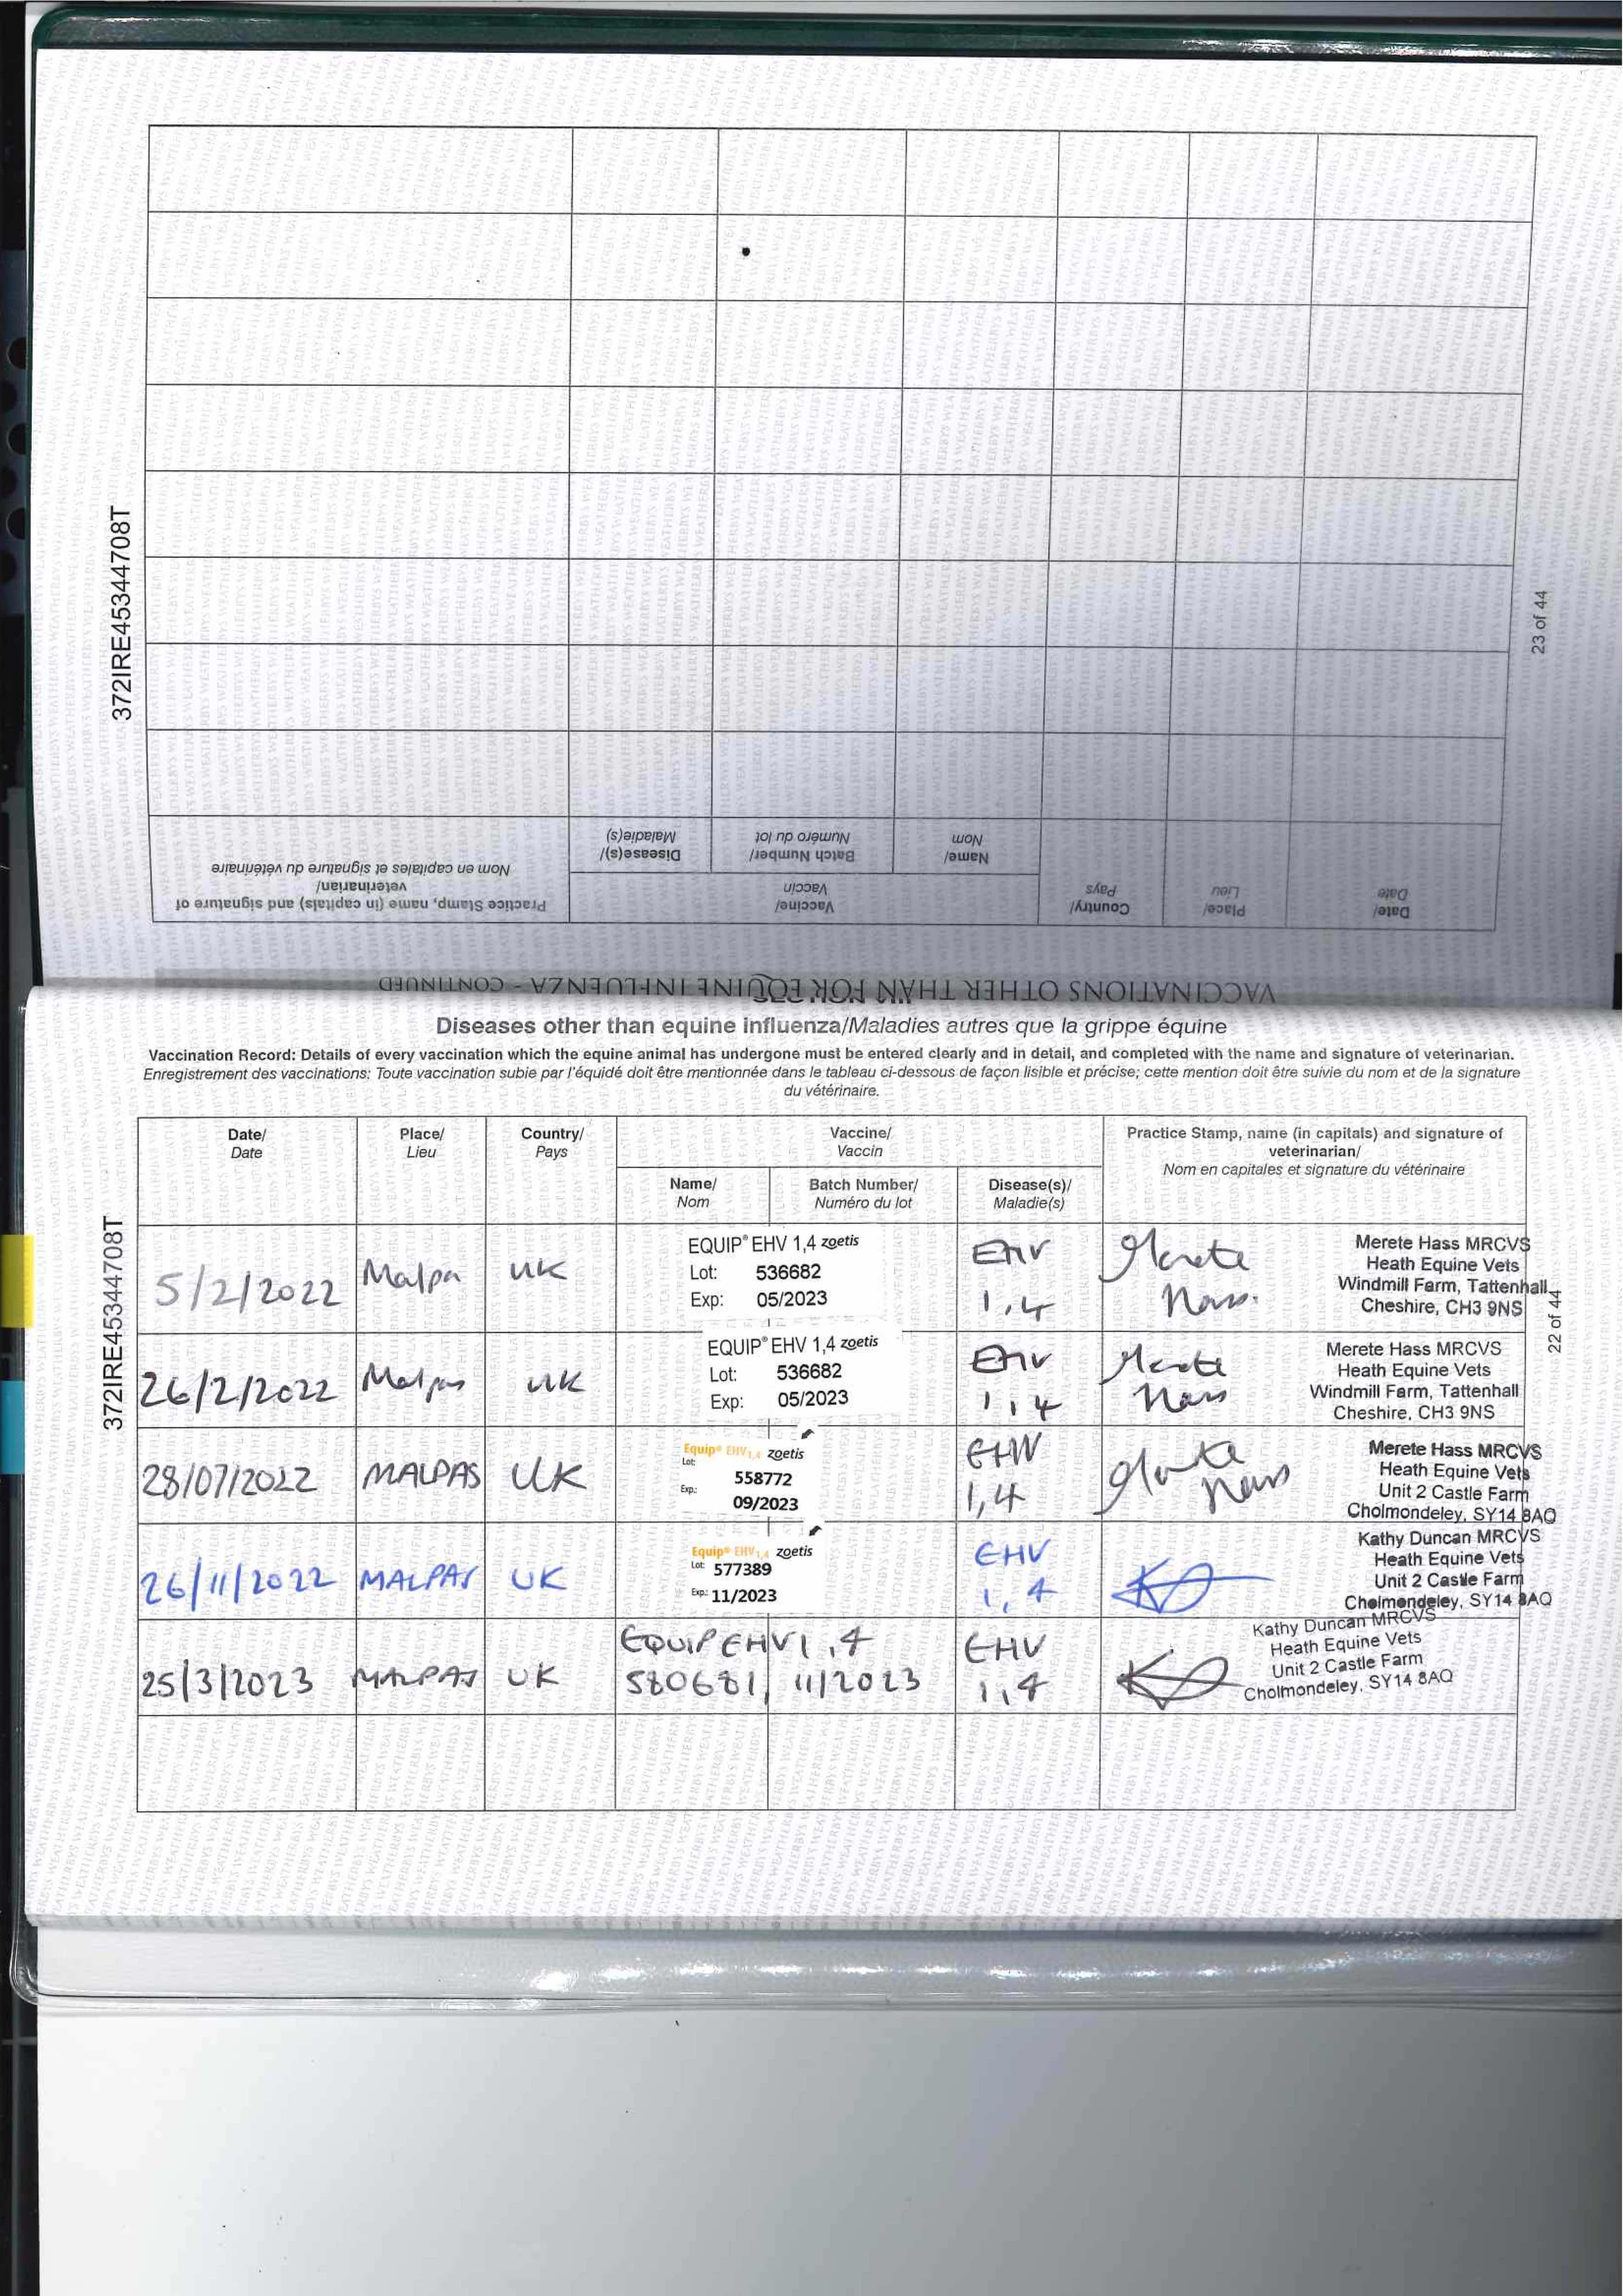 372IRE45344708T
23 of 44
VACCINATIONS OTHER THAN FOR EQUINE INFLUENZA - CONTINUED
Date/
Date
Place/
Lieu
Country/
Pays
Vaccine/
Vaccin
Name/
Nom
Batch Number/
Numéro du lot
Disease(s)/
Maladie(s)
Practice Stamp, name (in capitals) and signature of
veterinarian/
Nom en capitales et signature du vétérinaire
Diseases other than equine influenza/Maladies autres que la grippe équine
Vaccination Record: Details of every vaccination which the equine animal has undergone must be entered clearly and in detail, and completed with the name and signature of veterinarian.
Enregistrement des vaccinations: Toute vaccination subie par l'équidé doit être mentionnée dans le tableau ci-dessous de façon lisible et précise; cette mention doit être suivie du nom et de la signature
du vétérinaire.
372IRE45344708T
22 of 44
Date/
Date
Place/
Lieu
Country/
Pays
Vaccine/
Vaccin
Name/
Nom
Batch Number/
Numéro du lot
Disease(s)/
Maladie(s)
Practice Stamp, name (in capitals) and signature of
veterinarian/
Nom en capitales et signature du vétérinaire
5/2/2022
Malpa
UK
EQUIP® EHV 1,4 zoetis
Lot: 536682
Exp: 05/2023
EHV
1,4
Merete
Hass.
Merete Hass MRCVS
Heath Equine Vets
Windmill Farm, Tattenhall
Cheshire, CH3 9NS
26/2/2022
Malpas
UK
EQUIP® EHV 1,4 zoetis
Lot: 536682
Exp: 05/2023
EHV
1,4
Merete
Hass
Merete Hass MRCVS
Heath Equine Vets
Windmill Farm, Tattenhall
Cheshire, CH3 9NS
28/07/2022
MALPAS
UK
Equip® EHV1,4 zoetis
Lot: 558772
Exp.: 09/2023
EHV
1,4
Merete
Hass
Merete Hass MRCVS
Heath Equine Vets
Unit 2 Castle Farm
Cholmondeley, SY14 8AQ
26/11/2022
MALPAS
UK
Equip® EHV1,4 zoetis
Lot: 577389
Exp.: 11/2023
EHV
1,4
Kathy Duncan MRCVS
Heath Equine Vets
Unit 2 Castle Farm
Cholmondeley, SY14 8AQ
25/3/2023
MALPAS
UK
EQUIP EHV1,4
580681, 11/2023
EHV
1,4
Kathy Duncan MRCVS
Heath Equine Vets
Unit 2 Castle Farm
Cholmondeley, SY14 8AQ